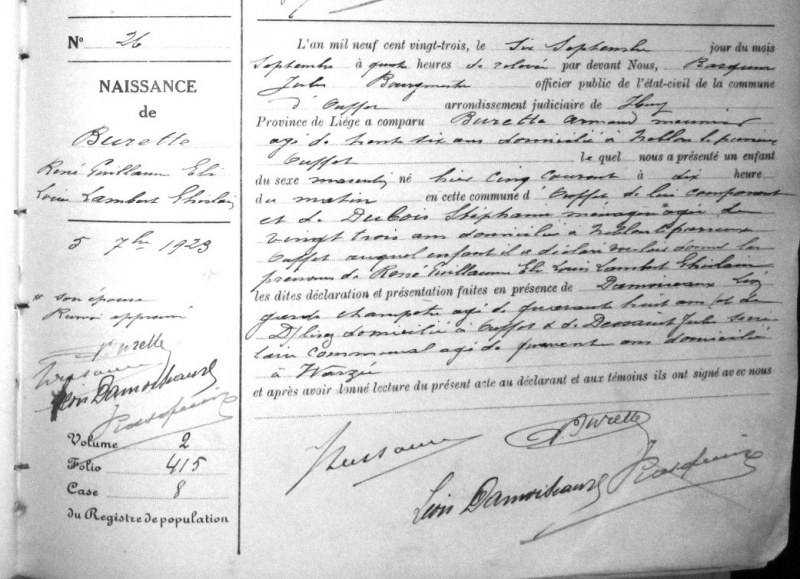 N° 26
NAISSANCE
de
Burette
René Guillaume Eli
Louis Lambert Ghislain
5 7bre 1923
son épouse
Renvoi approuvé
A. Burette
Léon Damoiseaux
Volume 2
Folio 415
Case 8
du Registre de population
L'an mil neuf cent vingt-trois, le six Septembre jour du mois
Septembre à quatre heures de relevée par devant Nous,
Jules Bourgmestre officier public de l'état-civil de la commune
d'Ouffet arrondissement judiciaire de Huy
Province de Liége a comparu Burette Armand meunier
agé de trente six ans domicilié à
Ouffet le quel nous a présenté un enfant
du sexe masculin né hier cinq courant à dix heure
du matin en cette commune d'Ouffet de lui comparant
et de Dubois Stéphanie ménagère agée de
vingt trois ans domiciliée à
Ouffet auquel enfant il a déclaré vouloir donner les
prénoms de René Guillaume Eli Louis Lambert Ghislain
les dites déclaration et présentation faites en présence de Damoiseaux
garde champêtre agé de quarante huit ans
domicilié à Ouffet & de Dessaint Jules secré
taire communal agé de quarante ans domicilié
à Warzée
et après avoir donné lecture du présent acte au déclarant et aux témoins ils ont signé avec nous
A. Burette
Léon Damoiseaux